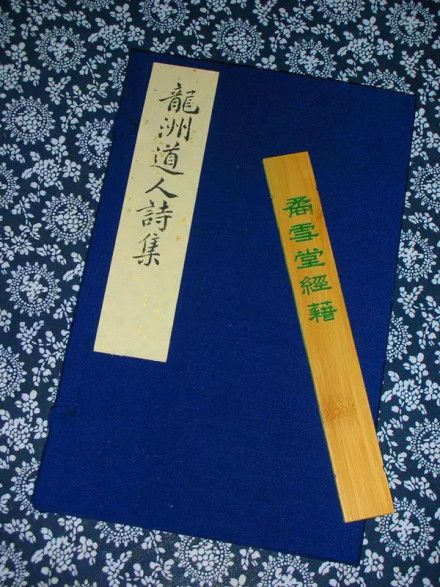 龍洲道人詩集
雪堂經藉